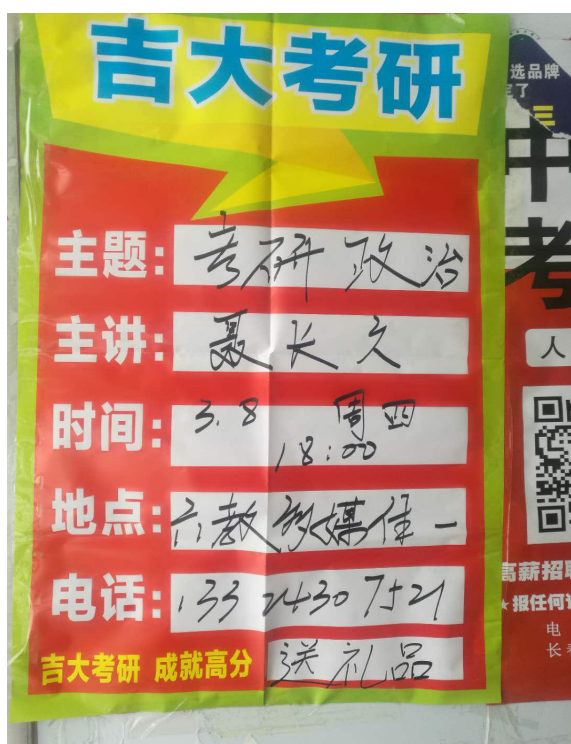 吉大考研
主题: 考研政治
主讲: 聂长久
时间: 3.8 周四
18:00
地点: 六教多媒体一
电话: 13324307521
吉大考研 成就高分 送礼品
选品牌
定了
中
考
人
高薪招聘
报任何
电
长春